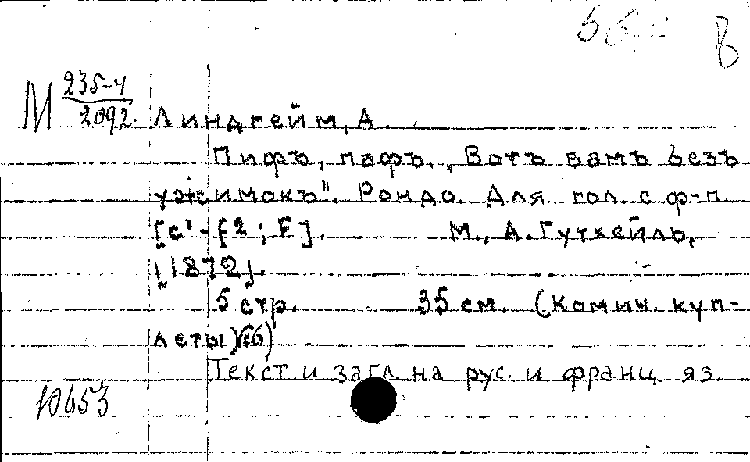 В
М 235-4
2092.
Линдгейм, А.
Пифъ, пафъ. „Вотъ вамъ безъ
ужимокъ". Рондо. Для гол. с ф-п.
[c¹-f2; F]. М., А. Гутхейль,
[1872].
5 стр. 35 см. (Комич. куп-
леты)
Текст и загл. на рус. и франц. яз.
10653